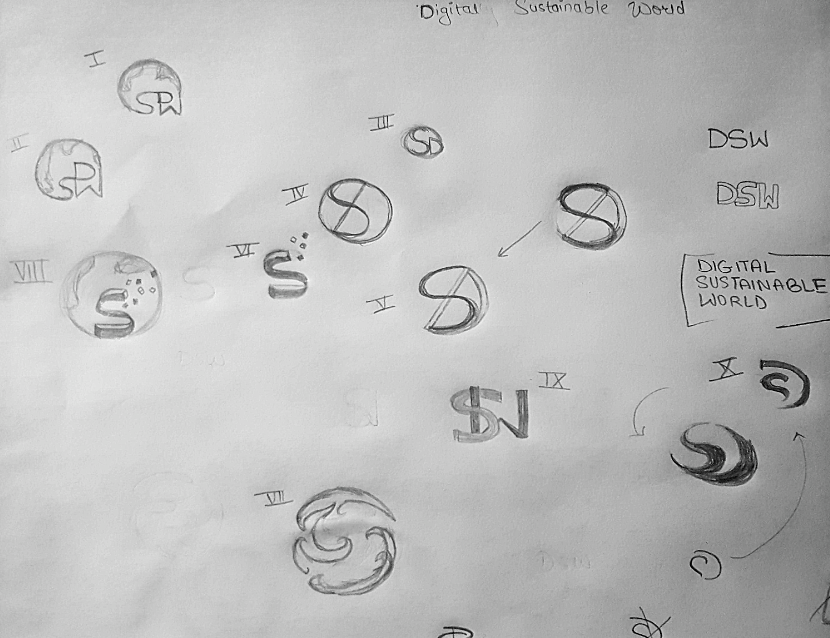 Digital Sustainable World
I
SDW
II
SDW
III
SD
DSW
IV
S
S
DSW
VI
S
VIII
S
V
S
DIGITAL
SUSTAINABLE
WORLD
X
IX
SW
VII
S